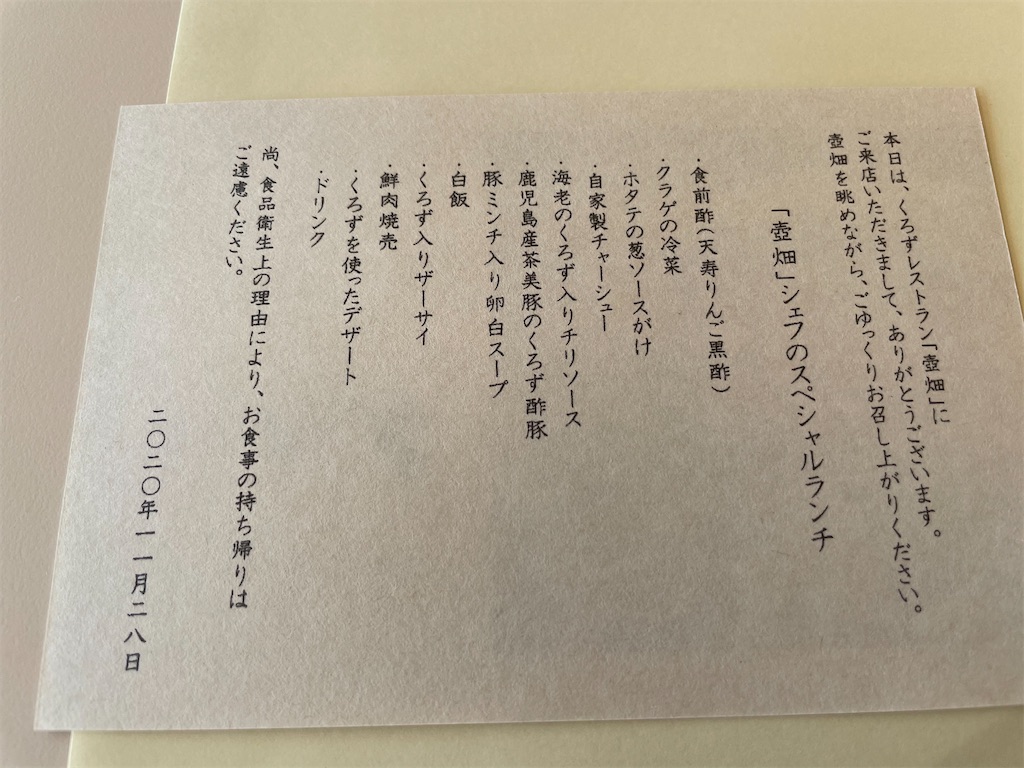 本日は、くろずレストラン「壺畑」に
ご来店いただきまして、ありがとうございます。
壺畑を眺めながら、ごゆっくりお召し上がりください。
「壺畑」シェフのスペシャルランチ
・食前酢(天寿りんご黒酢)
・クラゲの冷菜
・ホタテの葱ソースがけ
・自家製チャーシュー
・海老のくろず入りチリソース
・鹿児島産茶美豚のくろず酢豚
・豚ミンチ入り卵白スープ
・白飯
・くろず入りザーサイ
・鮮肉焼売
・くろずを使ったデザート
・ドリンク
尚、食品衛生上の理由により、お食事の持ち帰りは
ご遠慮ください。
二〇二〇年一一月二八日